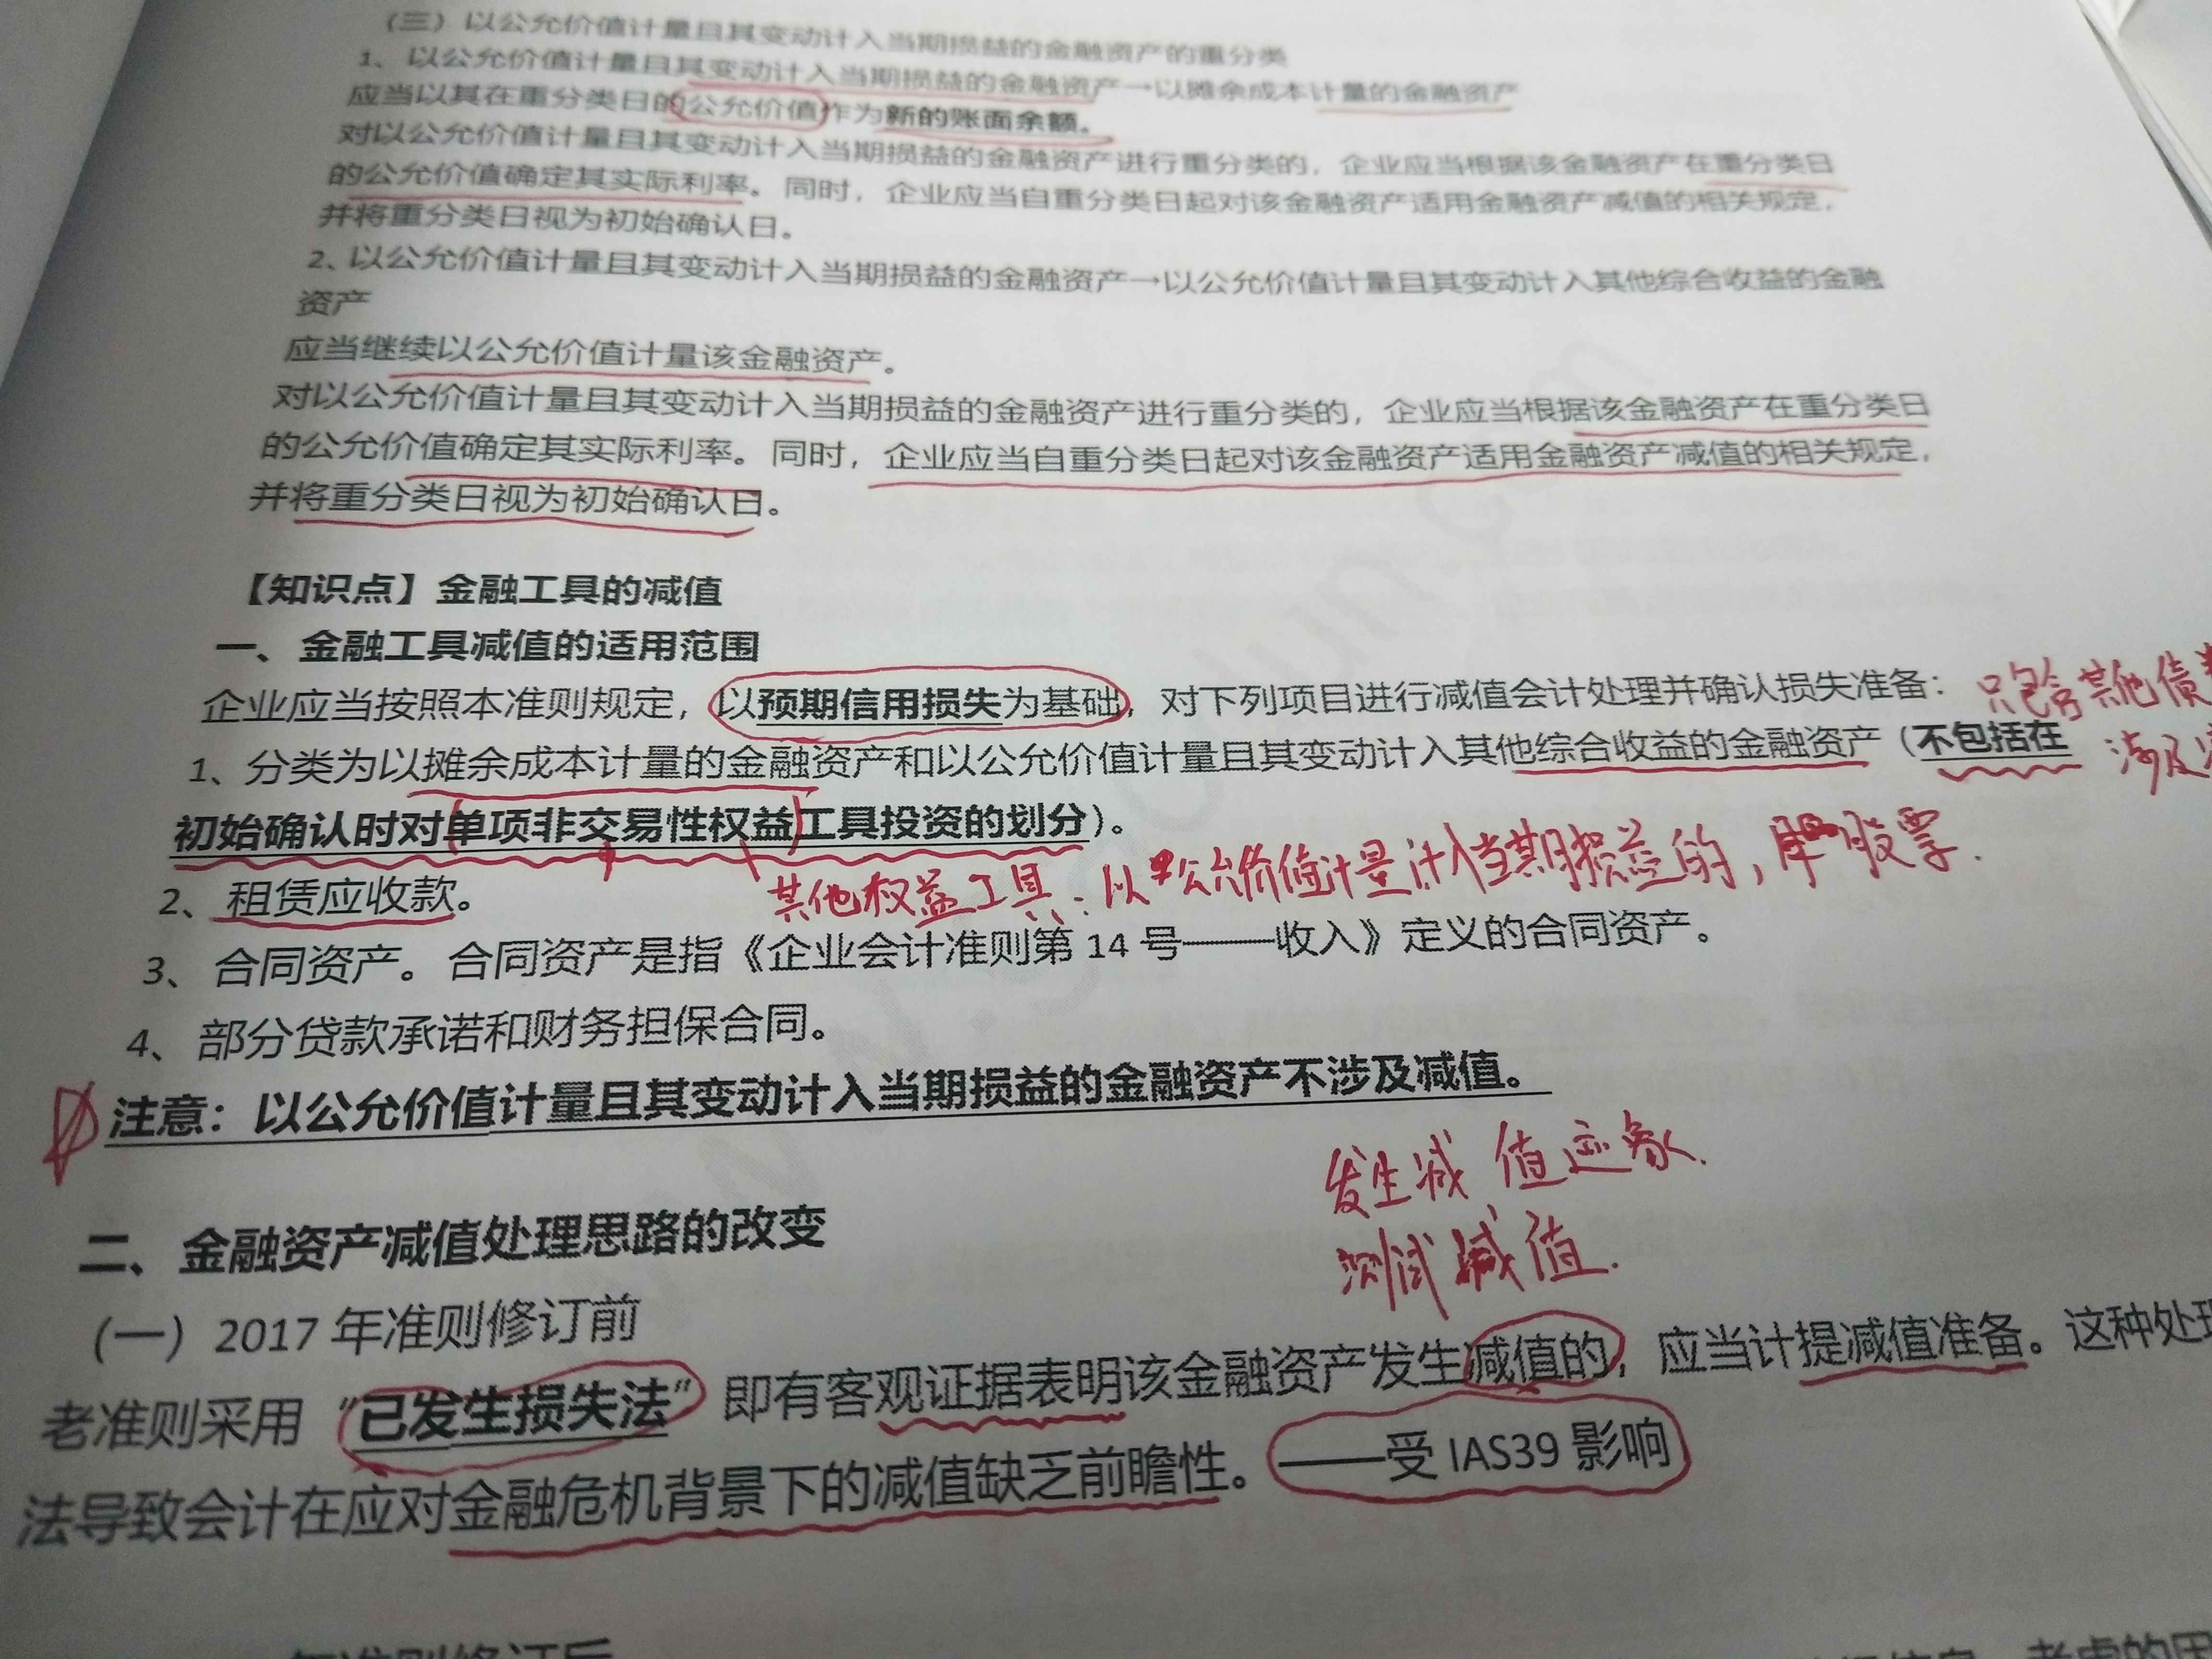 （三）以公允价值计量且其变动计入当期损益的金融资产的重分类
1、以公允价值计量且其变动计入当期损益的金融资产→以摊余成本计量的金融资产
应当以其在重分类日的公允价值作为新的账面余额。
对以公允价值计量且其变动计入当期损益的金融资产进行重分类的，企业应当根据该金融资产在重分类日
的公允价值确定其实际利率。同时，企业应当自重分类日起对该金融资产适用金融资产减值的相关规定，
并将重分类日视为初始确认日。
2、以公允价值计量且其变动计入当期损益的金融资产→以公允价值计量且其变动计入其他综合收益的金融
资产
应当继续以公允价值计量该金融资产。
对以公允价值计量且其变动计入当期损益的金融资产进行重分类的，企业应当根据该金融资产在重分类日
的公允价值确定其实际利率。同时，企业应当自重分类日起对该金融资产适用金融资产减值的相关规定，
并将重分类日视为初始确认日。
【知识点】金融工具的减值
一、金融工具减值的适用范围
企业应当按照本准则规定，以预期信用损失为基础，对下列项目进行减值会计处理并确认损失准备：
只包含其他债
1、分类为以摊余成本计量的金融资产和以公允价值计量且其变动计入其他综合收益的金融资产（不包括在
涉及
初始确认时对单项非交易性权益工具投资的划分）。
其他权益工具：以公允价值计量计入当期损益的，股票.
2、租赁应收款。
3、合同资产。合同资产是指《企业会计准则第 14 号——收入》定义的合同资产。
4、部分贷款承诺和财务担保合同。
注意：以公允价值计量且其变动计入当期损益的金融资产不涉及减值。
发生减值迹象.
测试减值.
二、金融资产减值处理思路的改变
（一）2017 年准则修订前
老准则采用“已发生损失法”即有客观证据表明该金融资产发生减值的，应当计提减值准备。这种处理
法导致会计在应对金融危机背景下的减值缺乏前瞻性。——受 IAS39 影响
年准则修订后